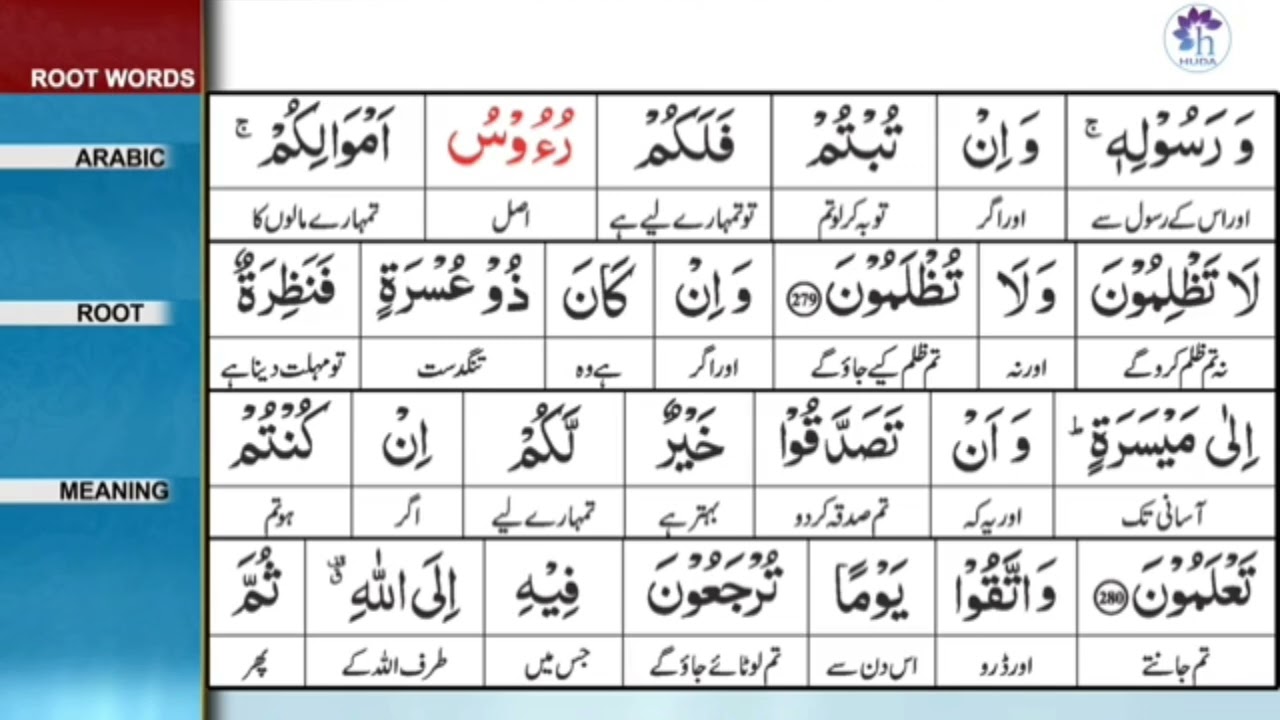 h
HUDA
ROOT WORDS
ARABIC
ROOT
MEANING
وَ رَسُوْلِهٖ ۚ وَ اِنْ تُبْتُمْ فَلَكُمْ رُءُوْسُ اَمْوَالِكُمْ ۚ
اور اس کے رسول سے اور اگر توبہ کر لو تم تو تمہارے لیے ہے اصل تمہارے مالوں کا
لَا تَظْلِمُوْنَ وَ لَا تُظْلَمُوْنَ 279 وَ اِنْ كَانَ ذُوْ عُسْرَةٍ فَنَظِرَةٌ
نہ تم ظلم کرو گے اور نہ تم ظلم کیے جاؤ گے اور اگر ہے وہ تنگدست تو مہلت دینا ہے
اِلٰى مَيْسَرَةٍ ؕ وَ اَنْ تَصَدَّقُوْا خَيْرٌ لَّكُمْ اِنْ كُنْتُمْ
آسانی تک اور یہ کہ تم صدقہ کر دو بہتر ہے تمہارے لیے اگر ہو تم
تَعْلَمُوْنَ 280 وَ اتَّقُوْا يَوْمًا تُرْجَعُوْنَ فِيْهِ اِلَى اللّٰهِ ۗ ثُمَّ
تم جانتے اور ڈرو اس دن سے تم لوٹائے جاؤ گے جس میں طرف اللہ کے پھر